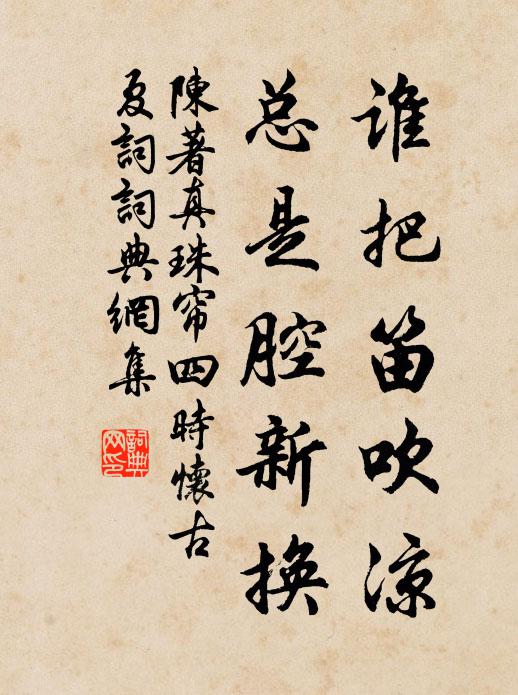 谁把笛吹凉
总是腔新换
陳著真珠帘四時懷古
夏詞詞典網集
詞典网印